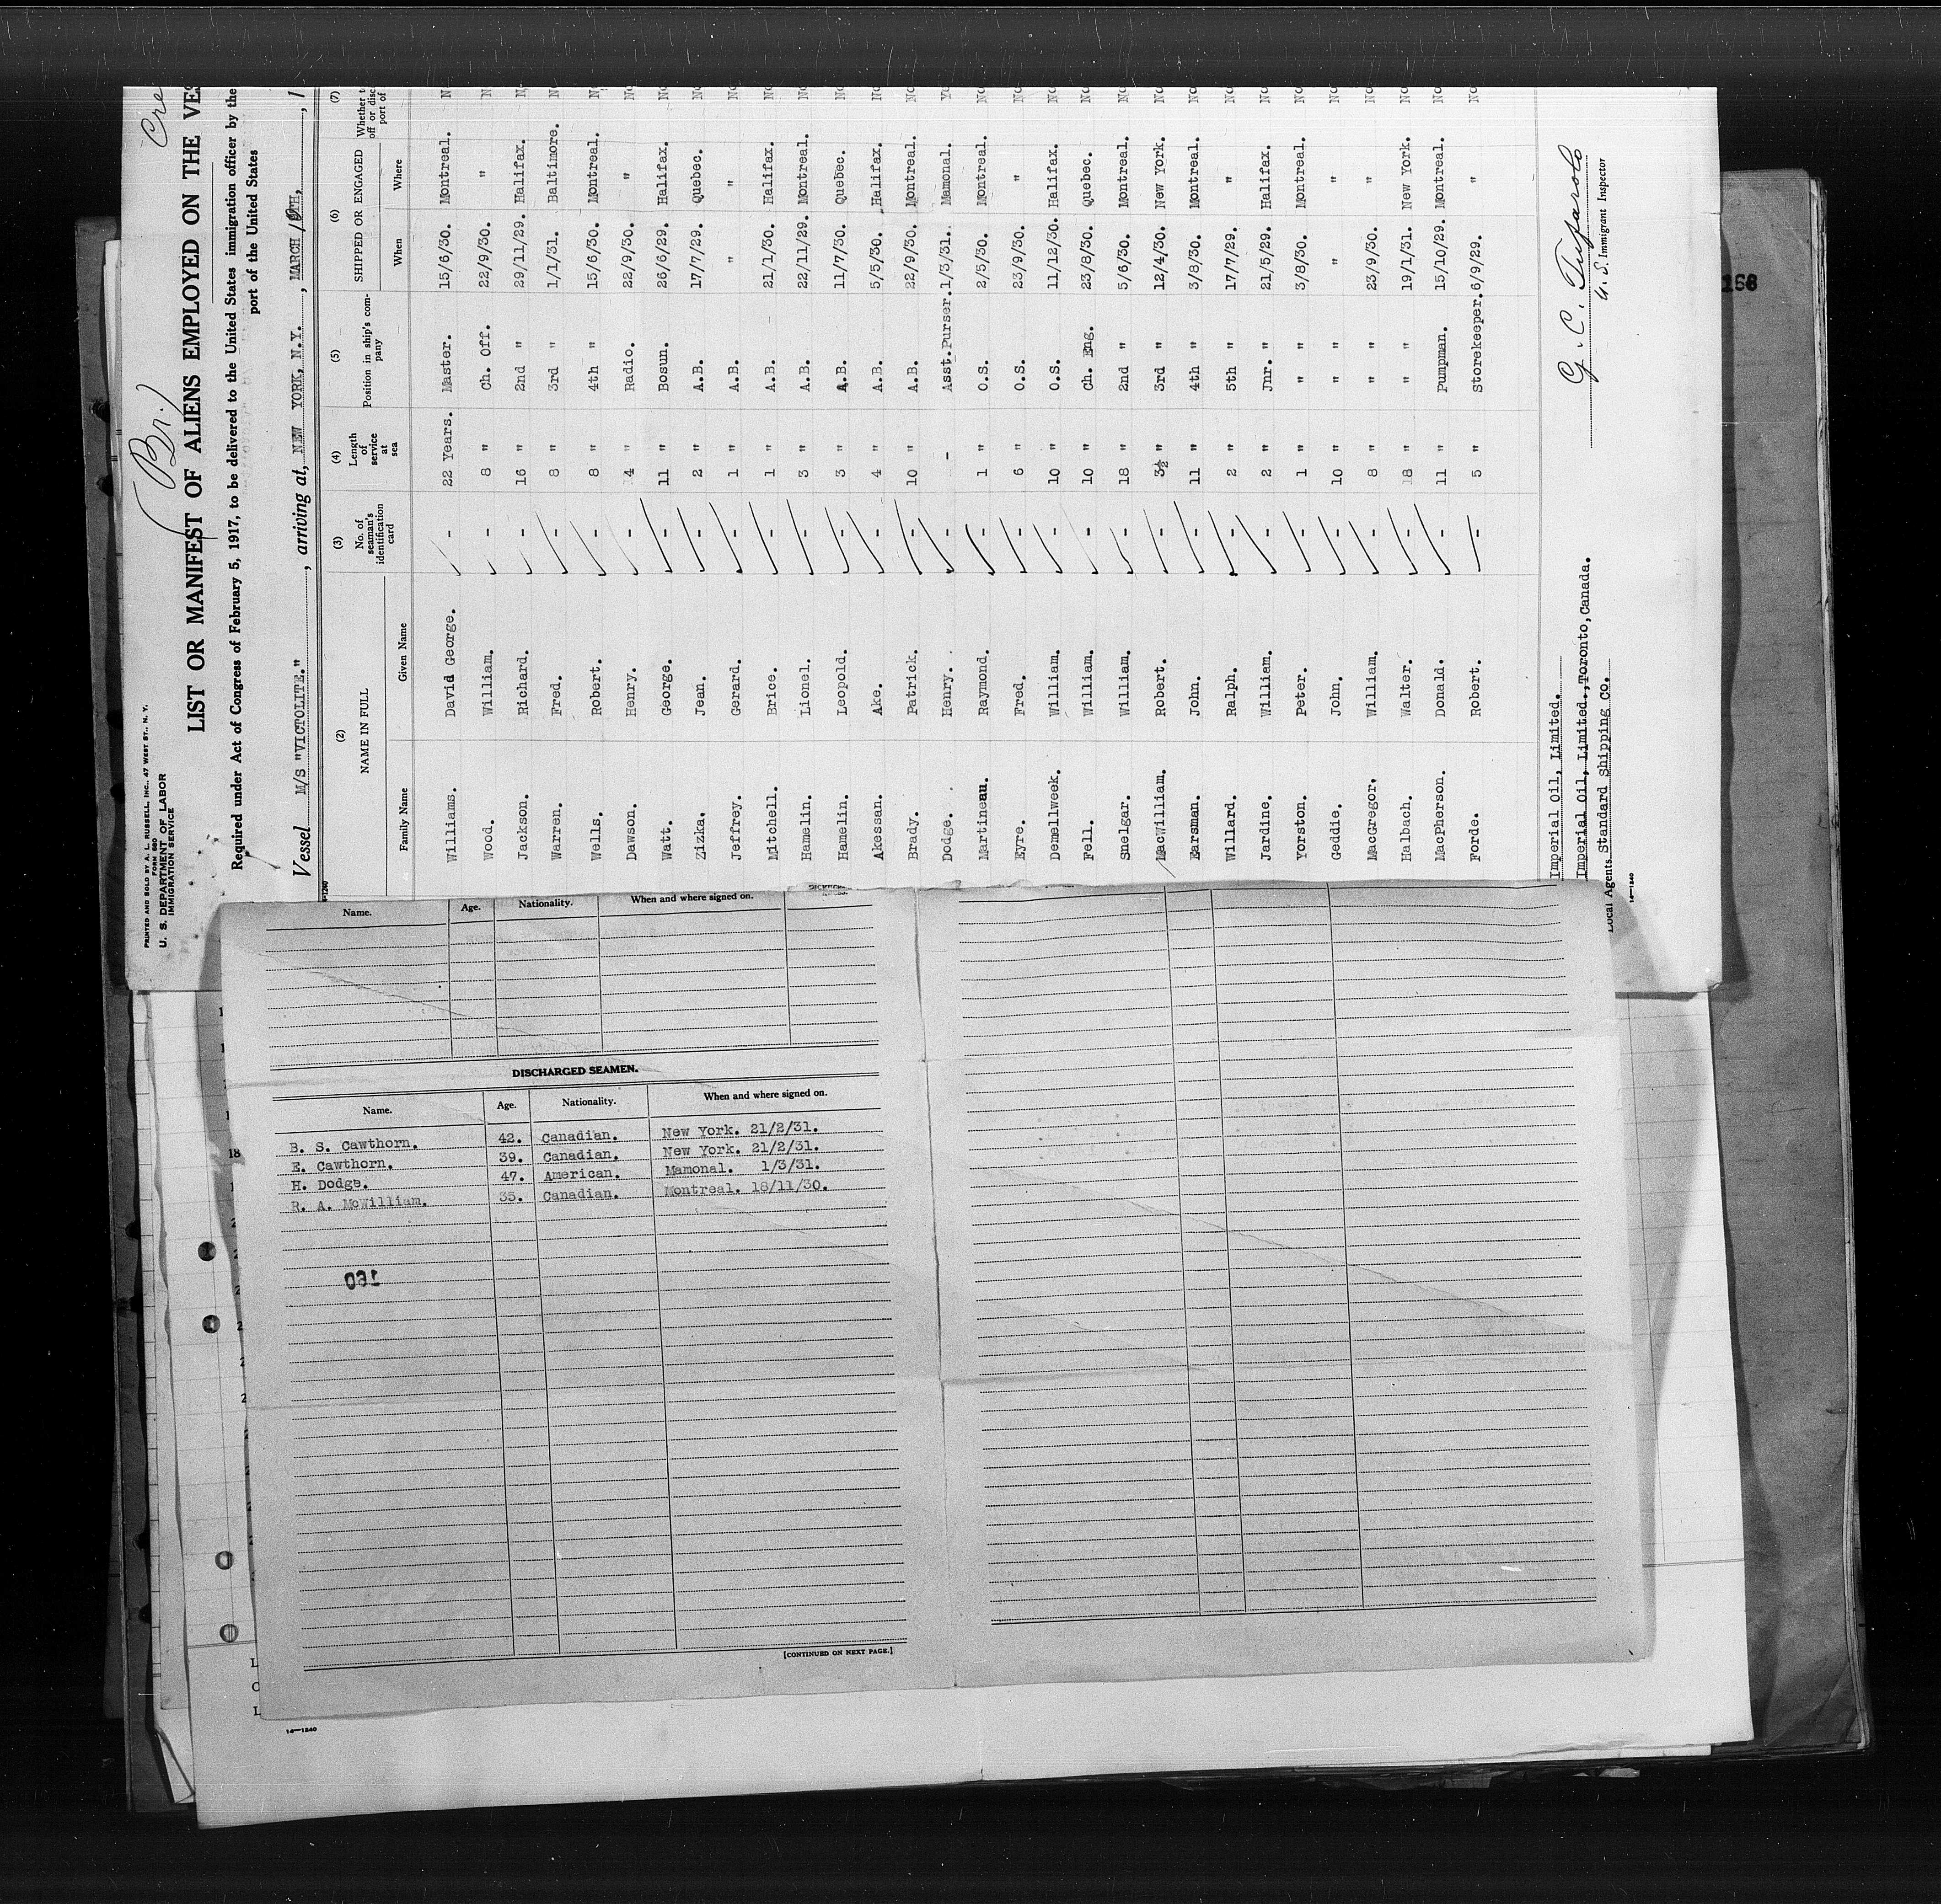 Cre
(Br.)
PRINTED AND SOLD BY A. L. RUSSELL, INC., 47 WEST ST., N. Y.
FORM 680
U. S. DEPARTMENT OF LABOR
IMMIGRATION SERVICE
LIST OR MANIFEST OF ALIENS EMPLOYED ON THE VES
Required under Act of Congress of February 5, 1917, to be delivered to the United States immigration officer by the
port of the United States
Vessel M/S "VICTOLITE." , arriving at, NEW YORK, N.Y. , MARCH TH, , 1
(2) (3) (4) (5) (6) (7)
NAME IN FULL No. of seaman's identification card Length of service at sea Position in ship's company SHIPPED OR ENGAGED Whether t off or disc port of
Family Name Given Name When Where
Williams. David George. - 22 Years. Master. 15/6/30. Montreal. N
Wood. William. - 8 " Ch. Off. 22/9/30. " No
Jackson. Richard. - 16 " 2nd " 29/11/29. Halifax. No
Warren. Fred. - 8 " 3rd " 1/1/31. Baltimore. No
Wells. Robert. - 8 " 4th " 15/6/30. Montreal. N
Dawson. Henry. - 4 " Radio. 22/9/30. " No
Watt. George. - 11 " Bosun. 26/6/29. Halifax. No
Zizka. Jean. - 2 " A.B. 17/7/29. Quebec. No
Jeffrey. Gerard. - 1 " A.B. " " No
Mitchell. Brice. - 1 " A.B. 21/1/30. Halifax. No
Hamelin. Lionel. - 3 " A.B. 22/11/29. Montreal. No
Hamelin. Leopold. - 3 " A.B. 11/7/30. Quebec. No
Akessan. Ake. - 4 " A.B. 5/5/30. Halifax. No
Brady. Patrick. - 10 " A.B. 22/9/30. Montreal. No
Dodge. Henry. - - Asst.Purser. 1/3/31. Mamonal. Ye
Martineau. Raymond. - 1 " O.S. 2/5/30. Montreal. No
Eyre. Fred. - 6 " O.S. 23/9/30. " No
Demellweek. William. - 10 " O.S. 11/12/30. Halifax. No
Fell. William. - 10 " Ch. Eng. 23/8/30. Quebec. No
Snelgar. William. - 18 " 2nd " 5/6/30. Montreal. No
MacWilliam. Robert. - 3½ " 3rd " 12/4/30. New York. No
Earsman. John. - 11 " 4th " 3/8/30. Montreal. No
Willard. Ralph. - 2 " 5th " 17/7/29. " No
Jardine. William. - 2 " Jnr. " 21/5/29. Halifax. No
Yorston. Peter. - 1 " " " 3/8/30. Montreal. No
Geddie. John. - 10 " " " " " No
MacGregor. William. - 8 " " " 23/9/30. " No
Halbach. Walter. - 18 " " " 19/1/31. New York. No
MacPherson. Donald. - 11 " Pumpman. 15/10/29. Montreal. No
Forde. Robert. - 5 " Storekeeper. 6/9/29. " No
Imperial Oil, Limited.
Imperial Oil, Limited.,Toronto,Canada.
Local Agents Standard Shipping Co.
U. S. Immigrant Inspector
14—1240
Name. Age. Nationality. When and where signed on.
DISCHARGED SEAMEN.
Name. Age. Nationality. When and where signed on.
B. S. Cawthorn. 42. Canadian. New York. 21/2/31.
E. Cawthorn. 39. Canadian. New York. 21/2/31.
H. Dodge. 47. American. Mamonal. 1/3/31.
R. A. McWilliam. 35. Canadian. Montreal. 18/11/30.
160
[CONTINUED ON NEXT PAGE.]
18
14—1240
166